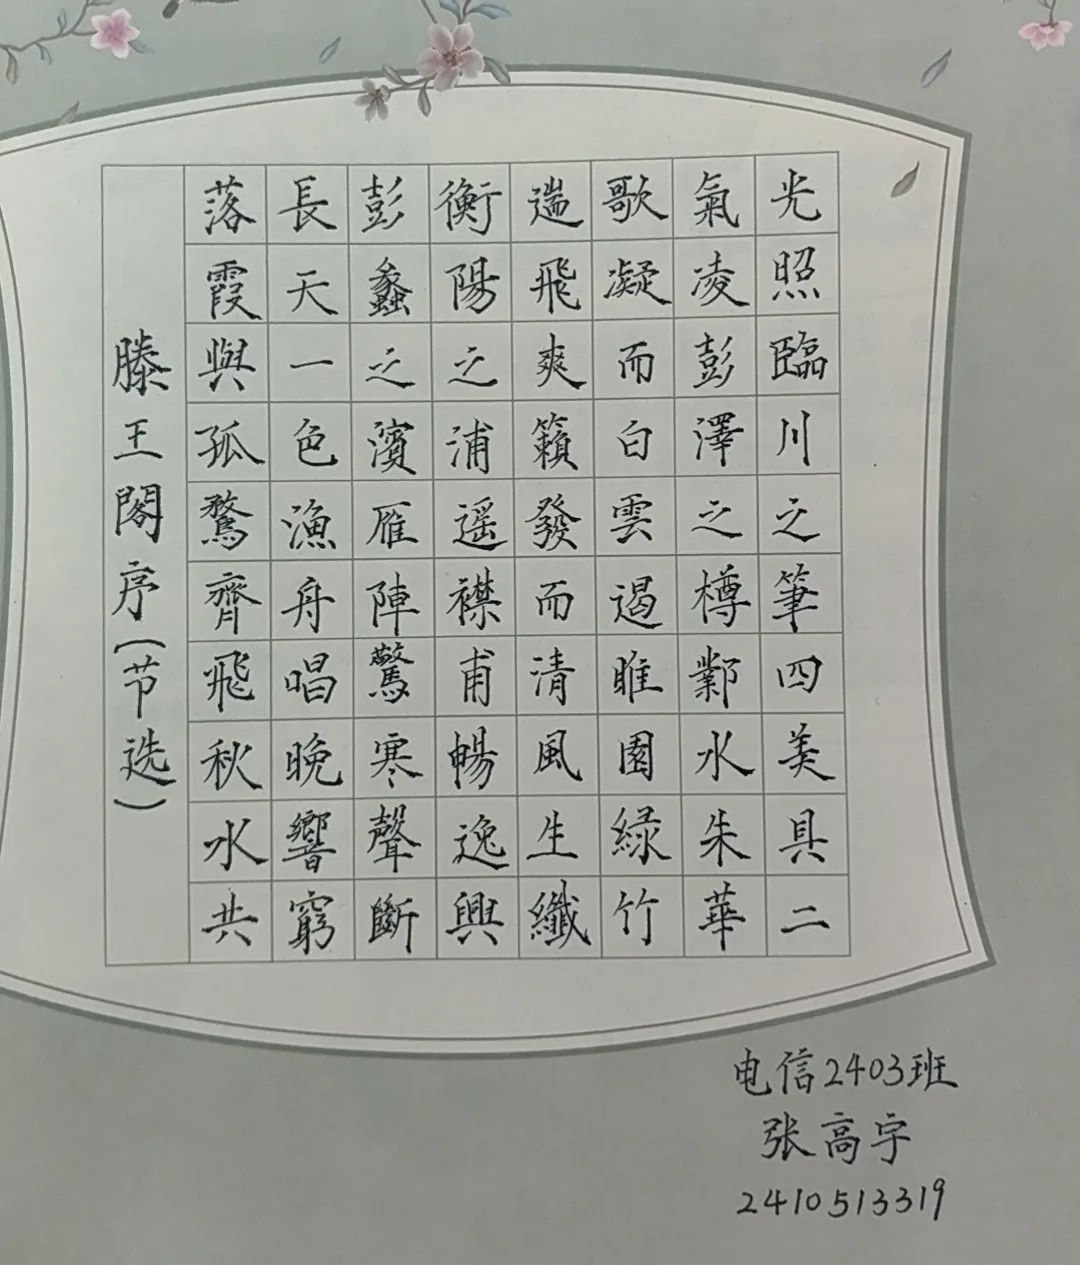 滕王閣序(节选)
落霞與孤鶩齊飛秋水共
長天一色漁舟唱晚響窮
彭蠡之濱雁陣驚寒聲斷
衡陽之浦遥襟甫暢逸興
遄飛爽籟發而清風生纖
歌凝而白雲遏睢園緑竹
氣凌彭澤之樽鄴水朱華
光照臨川之筆四美具二
电信2403班
张高宇
2410513319